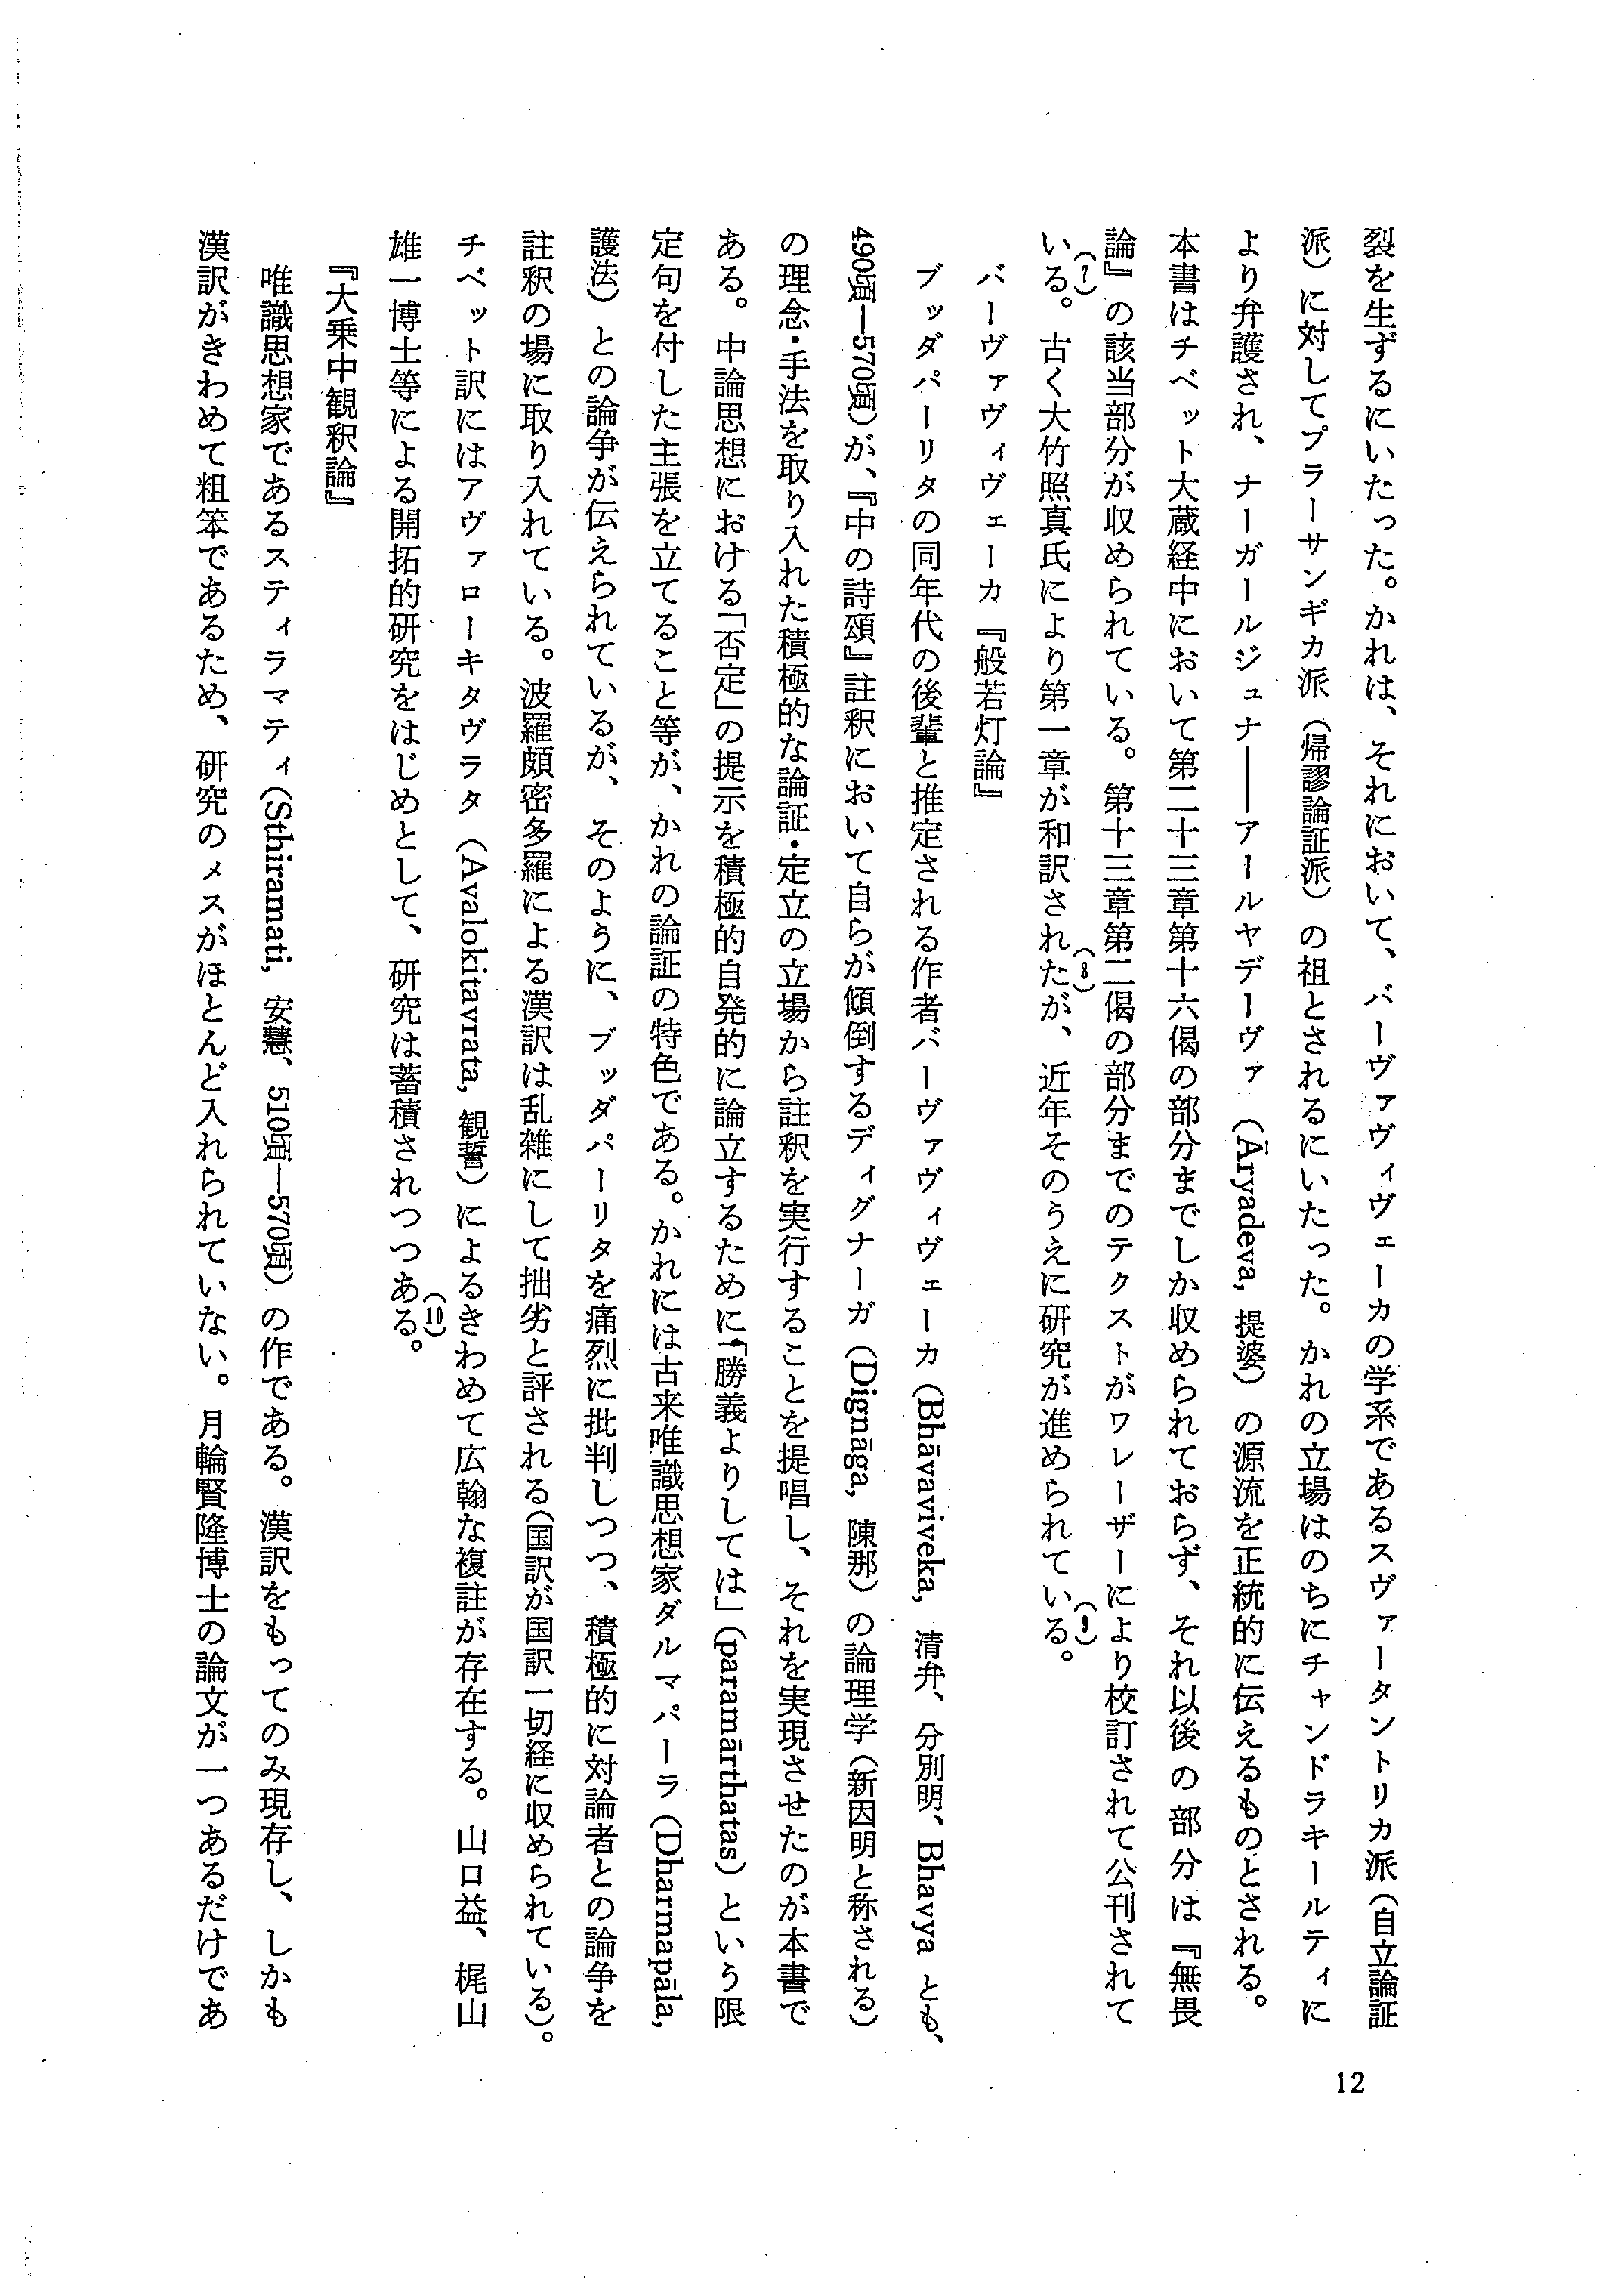 裂を生ずるにいたった。かれは、それにおいて、バーヴァヴィヴェーカの学系であるスヴァータントリカ派（自立論証
派）に対してプラーサンギカ派（帰謬論証派）の祖とされるにいたった。かれの立場はのちにチャンドラキールティに
より弁護され、ナーガールジュナ――アールヤデーヴァ（Āryadeva, 提婆）の源流を正統的に伝えるものとされる。
本書はチベット大蔵経中において第二十三章第十六偈の部分までしか収められておらず、それ以後の部分は『無畏
論』の該当部分が収められている。第十三章第二偈の部分までのテクストがワレーザーにより校訂されて公刊されて
いる。(7)古く大竹照真氏により第一章が和訳された(8)が、近年そのうえに研究が進められている(9)。
バーヴァヴィヴェーカ『般若灯論』
ブッダパーリタの同年代の後輩と推定される作者バーヴァヴィヴェーカ（Bhāvaviveka, 清弁、分別明、Bhavya とも、
490頃―570頃）が、『中の詩頌』註釈において自らが傾倒するディグナーガ（Dignāga, 陳那）の論理学（新因明と称される）
の理念・手法を取り入れた積極的な論証・定立の立場から註釈を実行することを提唱し、それを実現させたのが本書で
ある。中論思想における「否定」の提示を積極的自発的に論立するために「勝義よりしては」（paramārthatas）という限
定句を付した主張を立てること等が、かれの論証の特色である。かれには古来唯識思想家ダルマパーラ（Dharmapāla,
護法）との論争が伝えられているが、そのように、ブッダパーリタを痛烈に批判しつつ、積極的に対論者との論争を
註釈の場に取り入れている。波羅頗密多羅による漢訳は乱雑にして拙劣と評される（国訳が国訳一切経に収められている）。
チベット訳にはアヴァローキタヴラタ（Avalokitavrata, 観誓）によるきわめて広翰な複註が存在する。山口益、梶山
雄一博士等による開拓的研究をはじめとして、研究は蓄積されつつある(10)。
『大乗中観釈論』
唯識思想家であるスティラマティ（Sthiramati, 安慧、510頃―570頃）の作である。漢訳をもってのみ現存し、しかも
漢訳がきわめて粗笨であるため、研究のメスがほとんど入れられていない。月輪賢隆博士の論文が一つあるだけであ
12